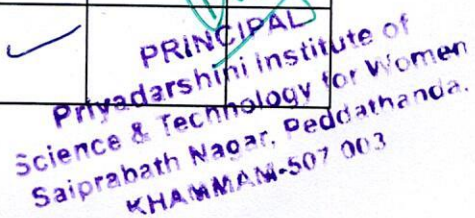 PRINCIPAL
Priyadarshini Institute of
Science & Technology for Women
Saiprabath Nagar, Peddathanda.
KHAMMAM-507 003